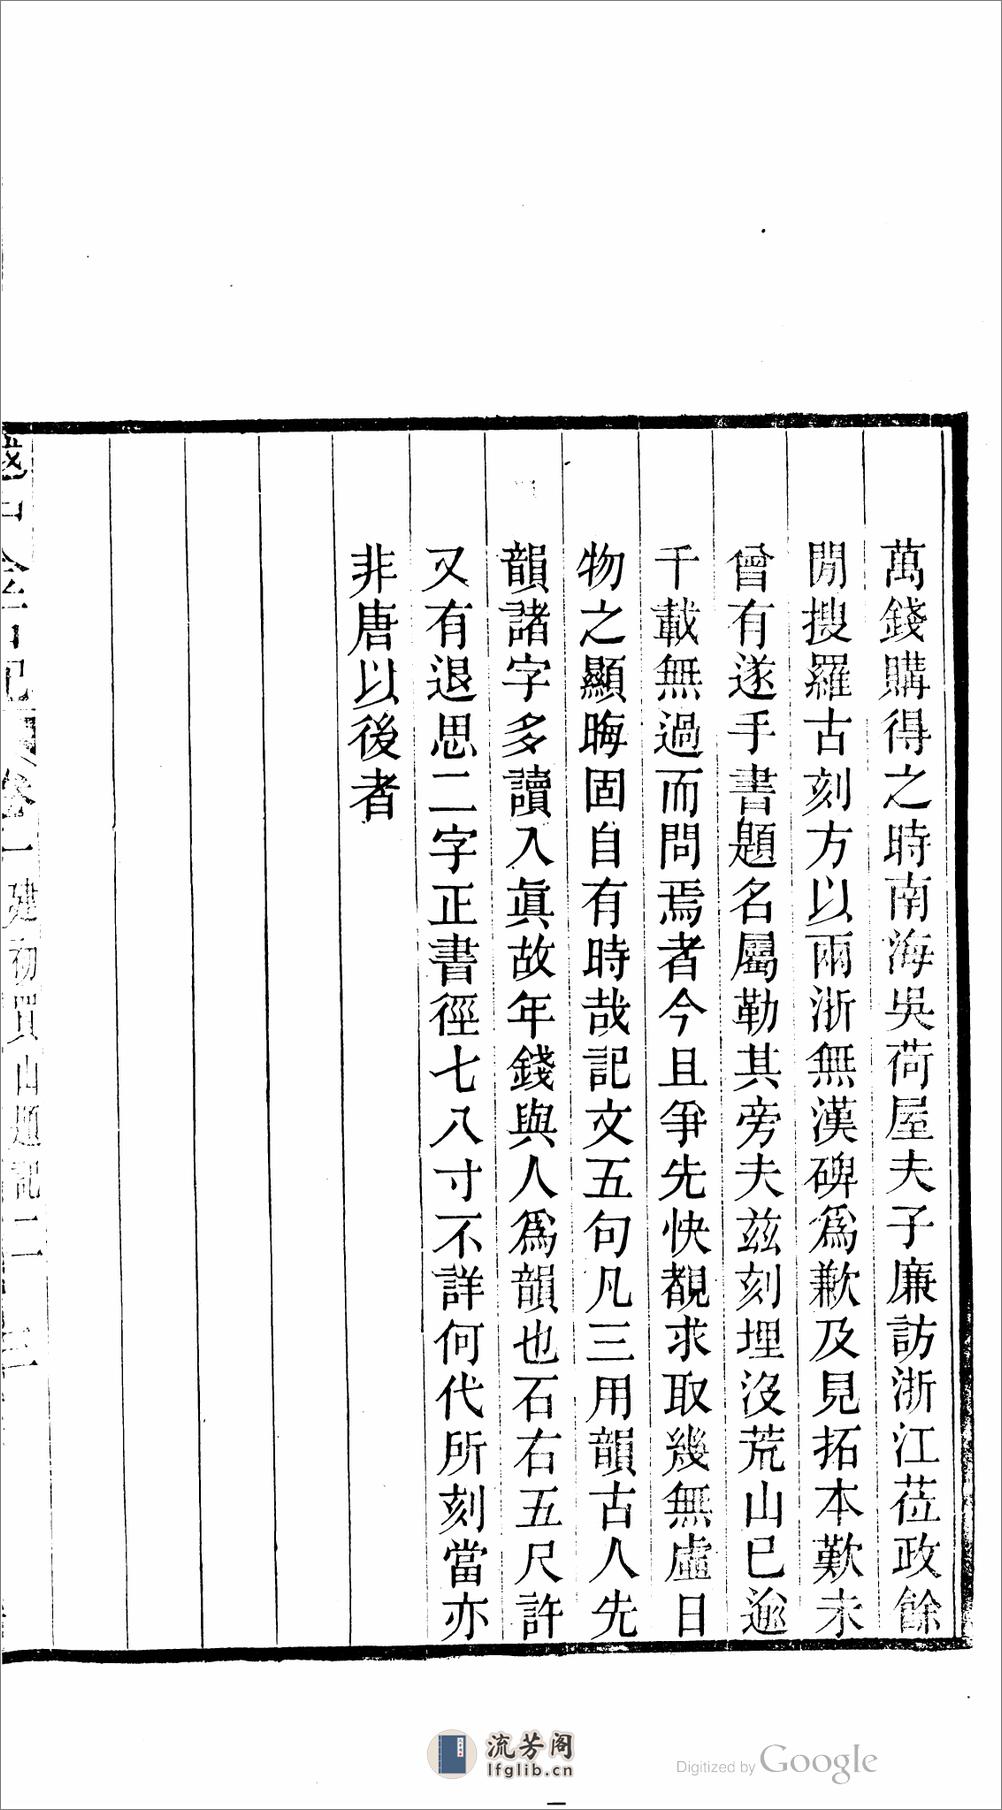 萬錢購得之時南海吳荷屋夫子廉訪浙江莅政餘
閒搜羅古刻方以兩浙無漢碑爲歉及見拓本歎未
曾有遂手書題名屬勒其旁夫玆刻埋沒荒山已逾
千載無過而問焉者今且爭先快覩求取幾無虛日
物之顯晦固自有時哉記文五句凡三用韻古人先
韻諸字多讀入眞故年錢與人爲韻也石右五尺許
又有退思二字正書徑七八寸不詳何代所刻當亦
非唐以後者
越中金石記 卷一 建初買山題記二 三
流芳阁
lfglib.cn
Digitized by Google